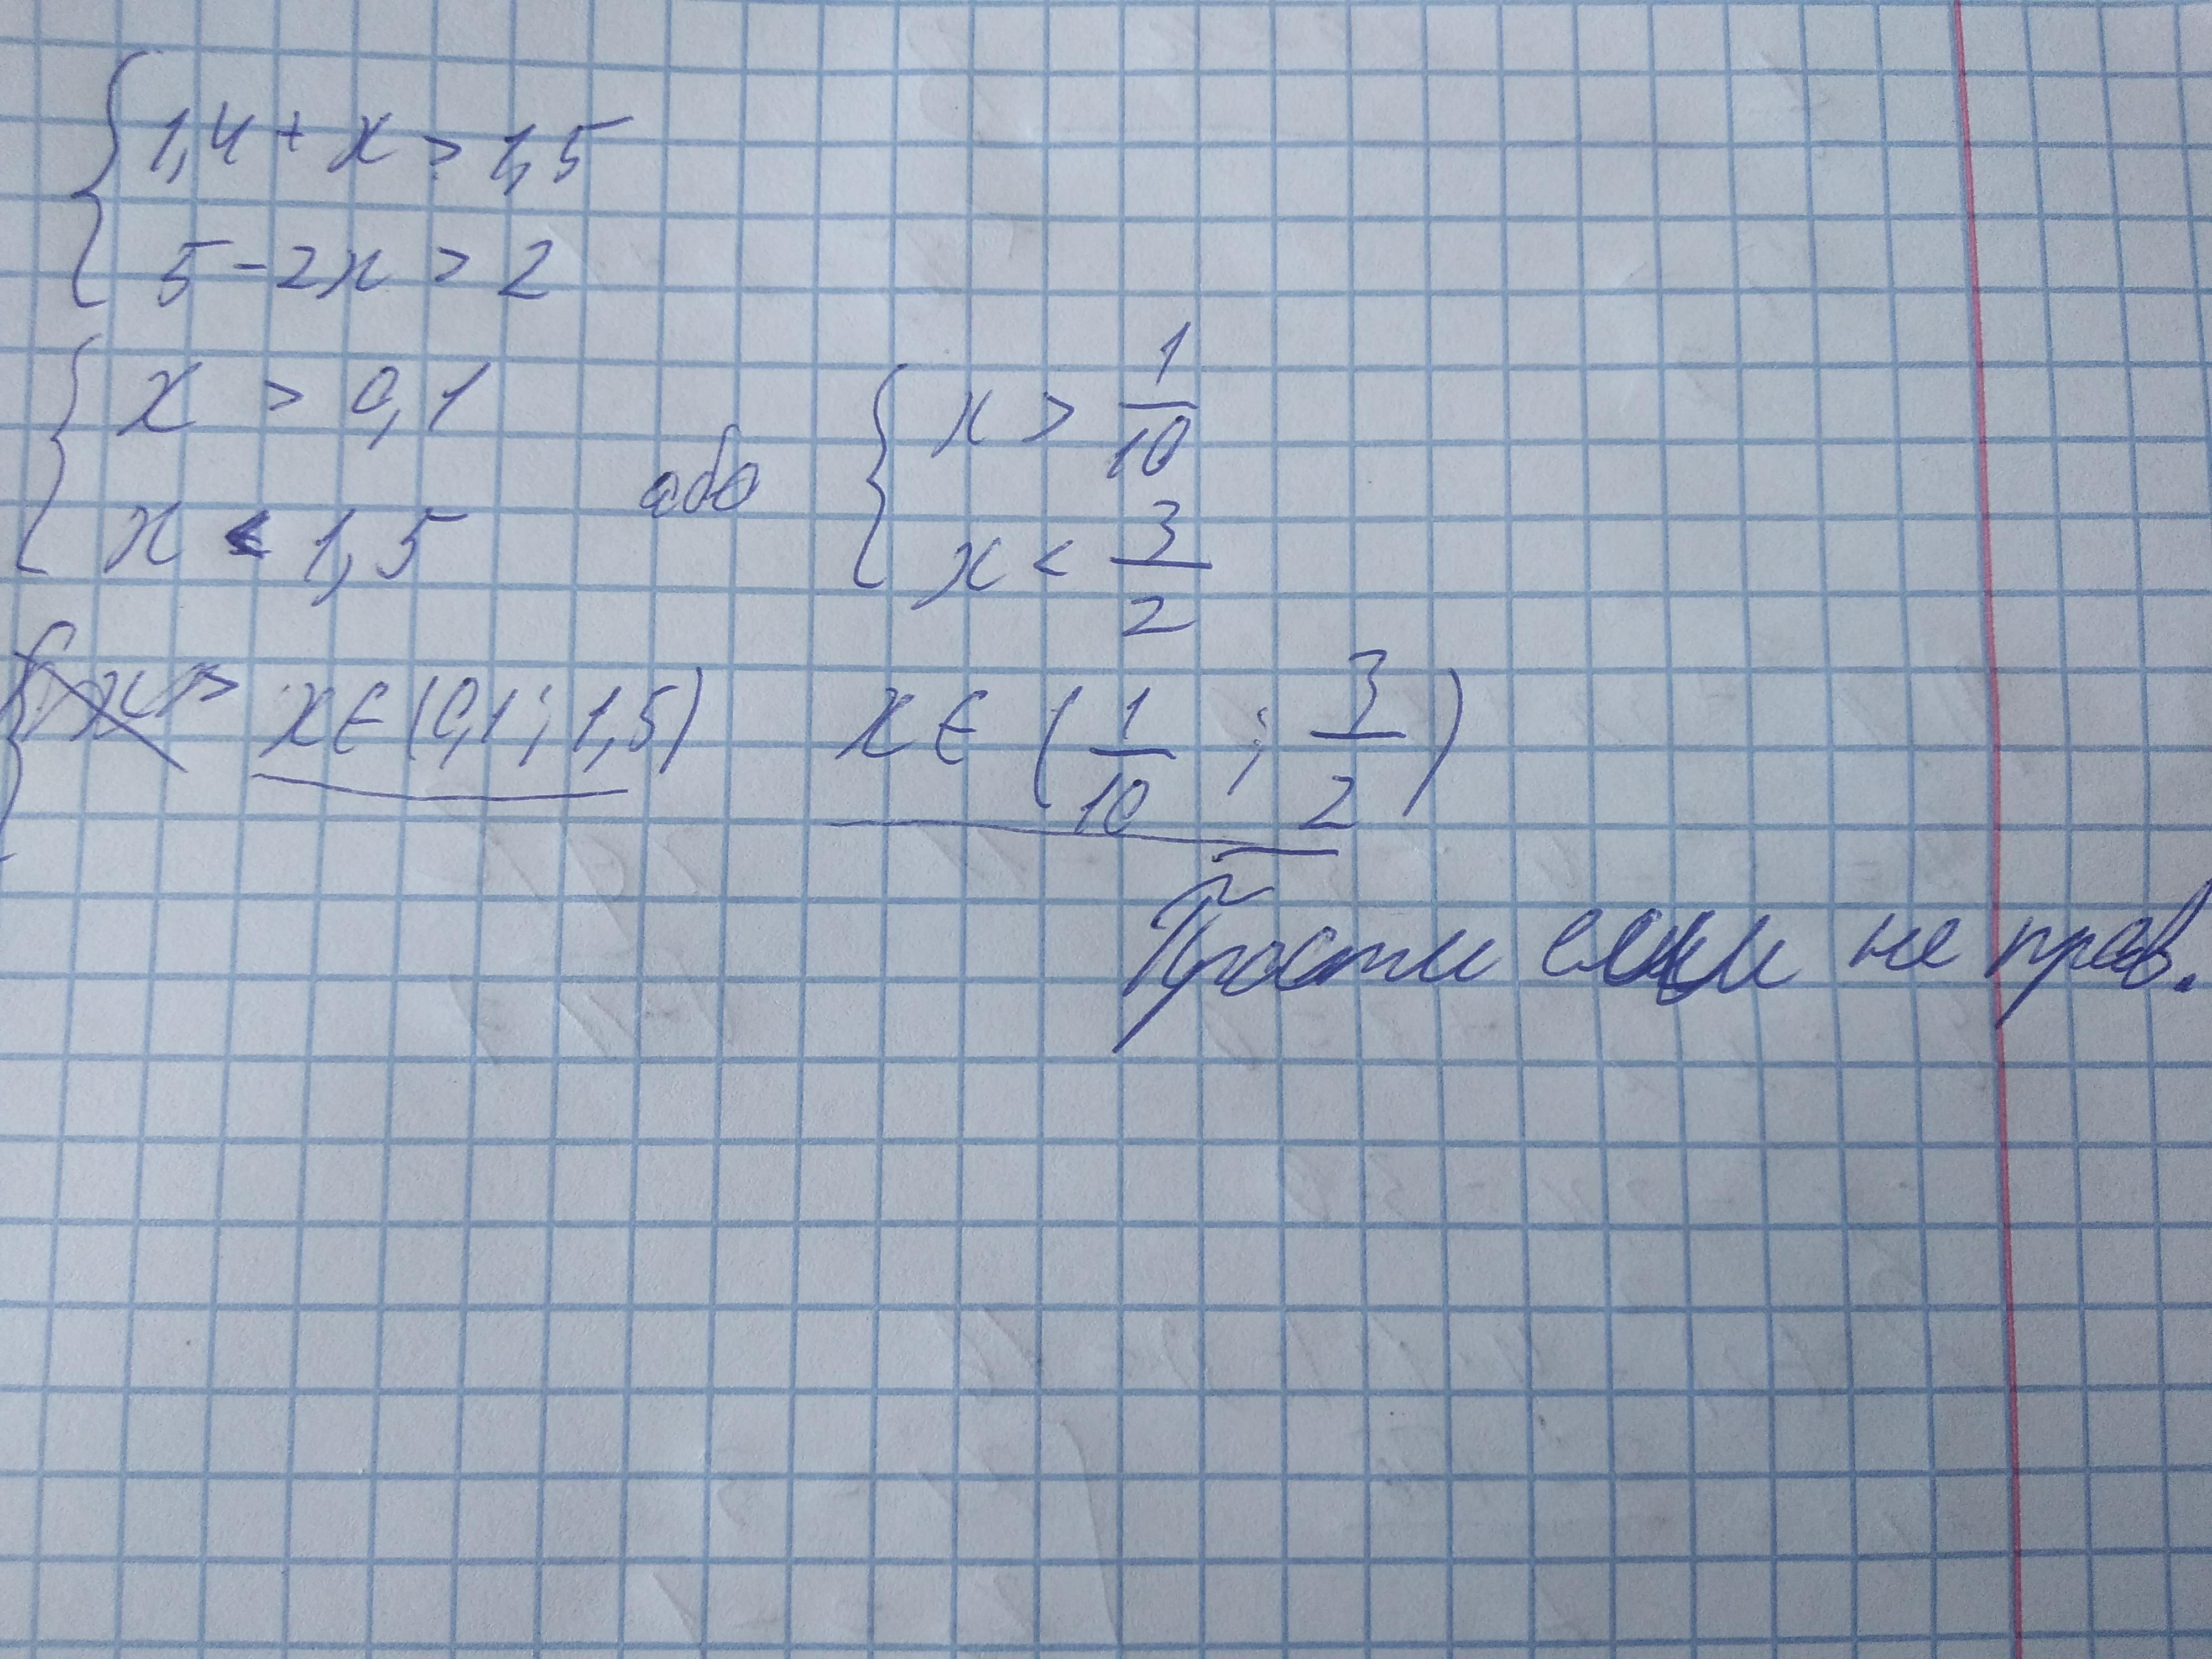 1,4 + x > 1,5
5 - 2x > 2
x > 0,1
x < 1,5
або
x > 1/10
x < 3/2
x >
x ∈ (0,1; 1,5)
x ∈ (1/10 ; 3/2)
Прости если не прав.